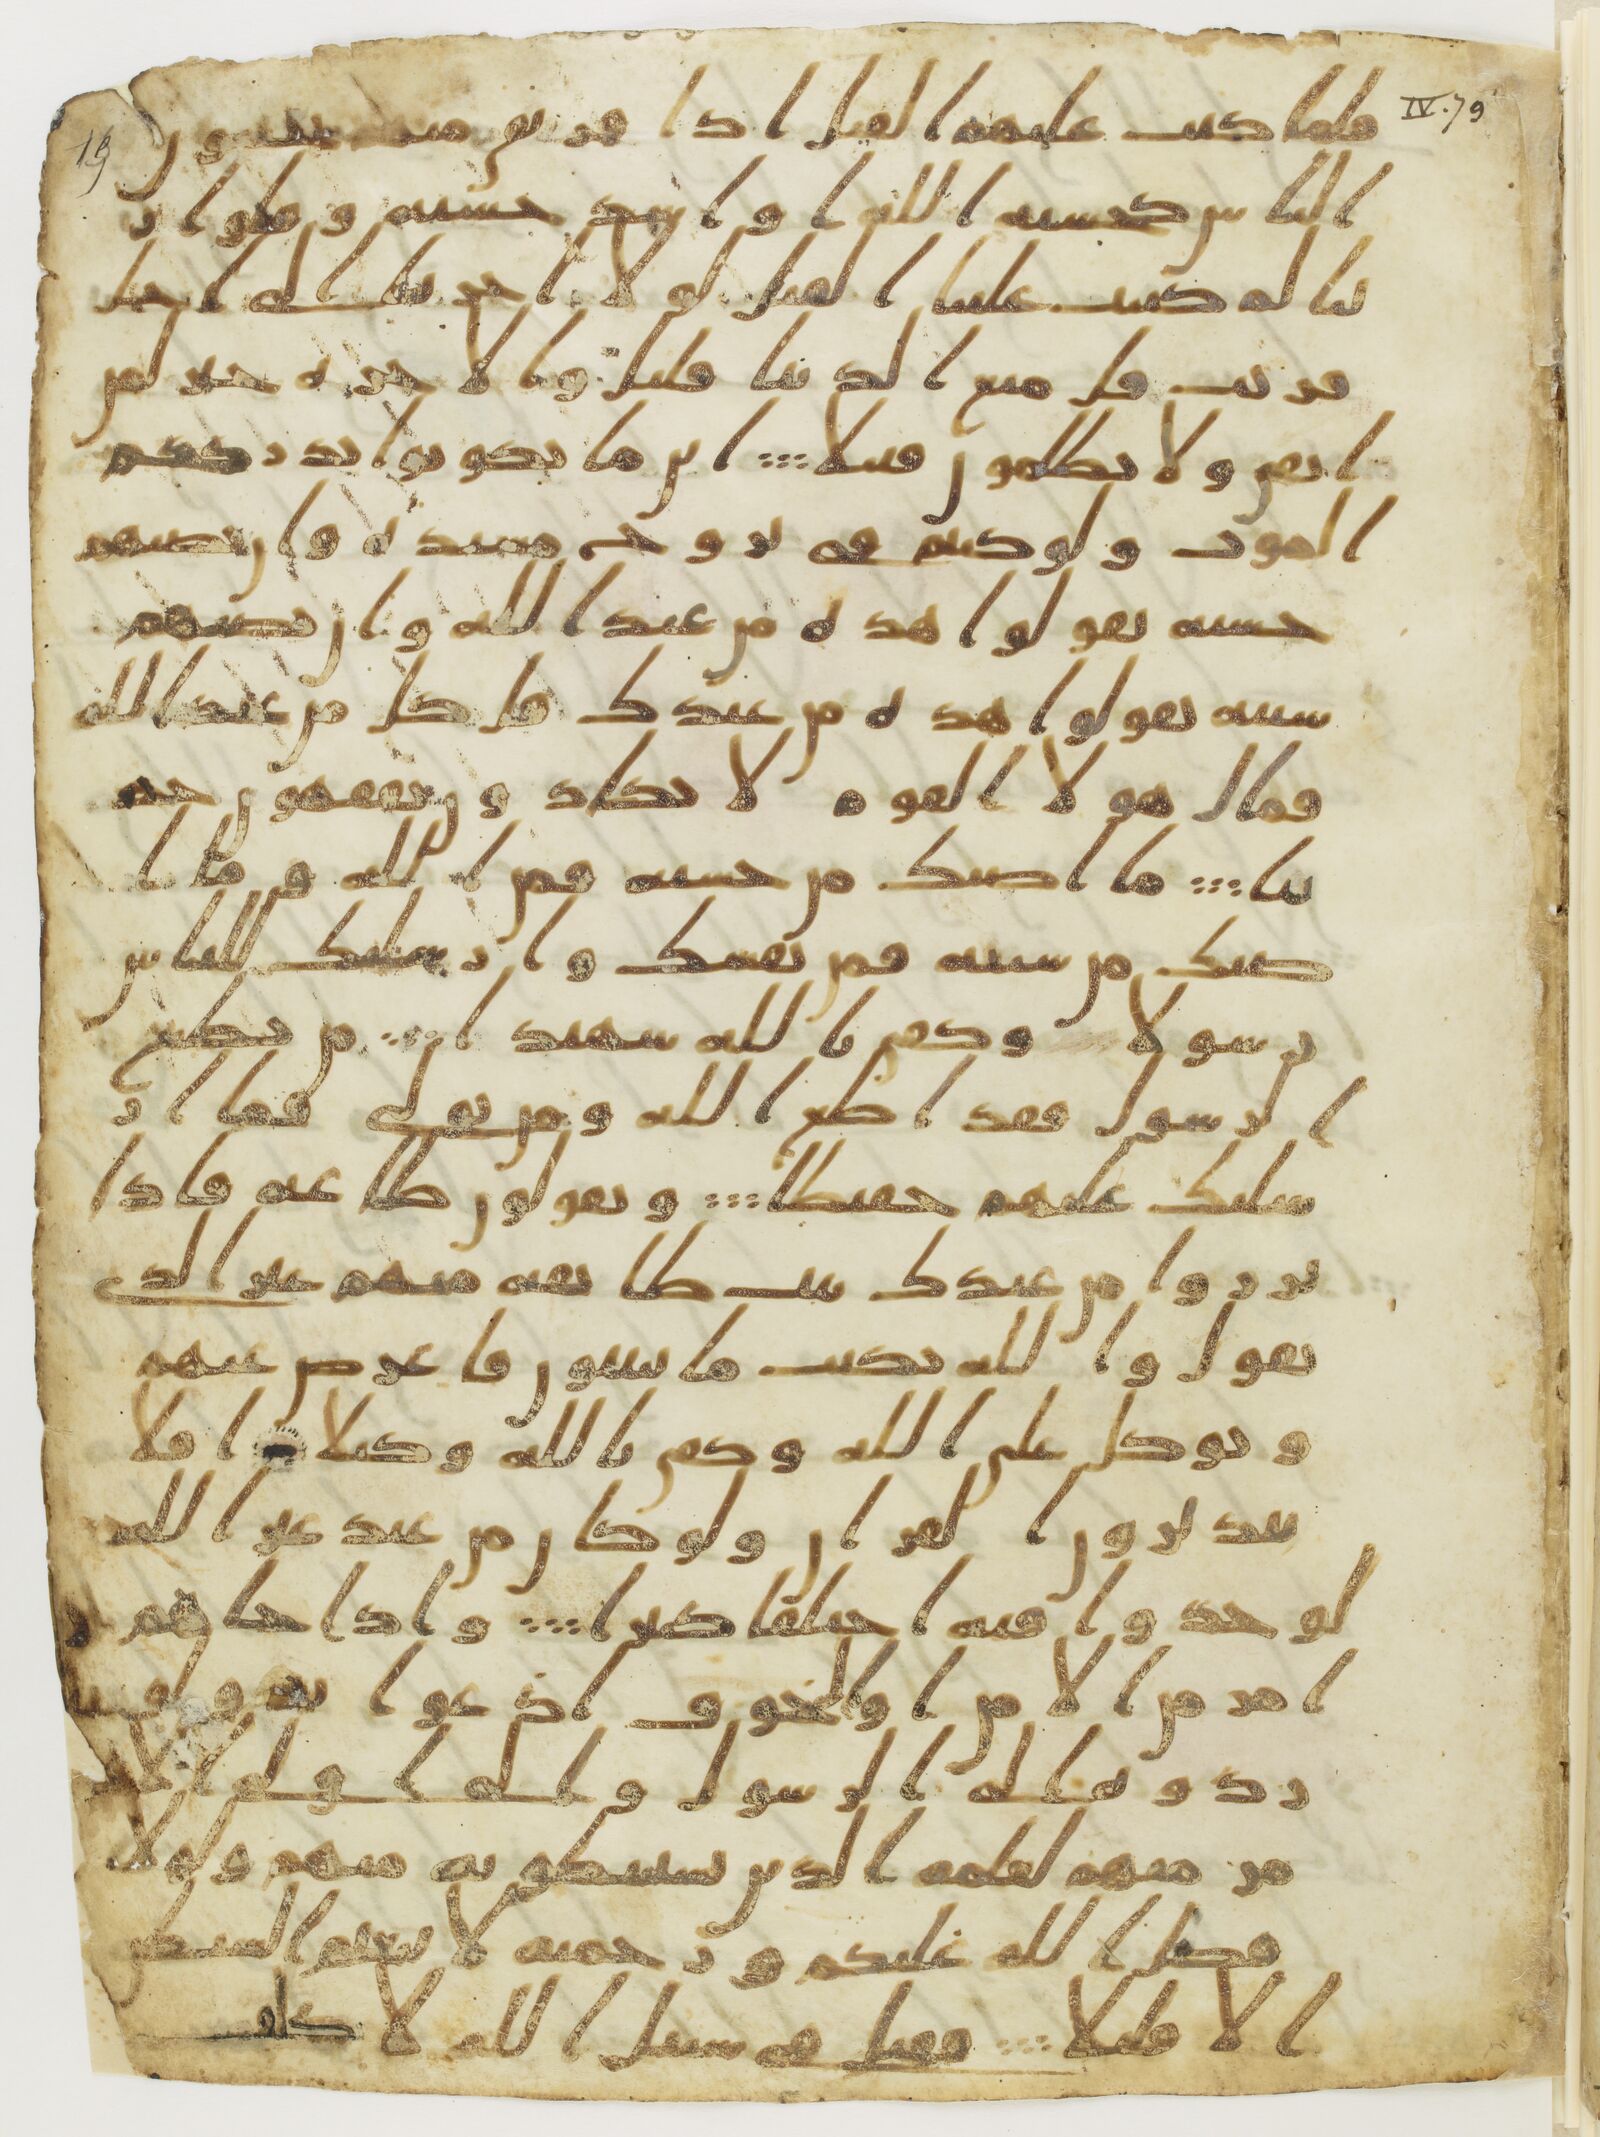 IV. 79
19
فلما كتب عليهم القتل اذا فريق منهم يخشون
الناس كخشيه الله او اشد خشيه وقالوا ر
بنا لم كتبت علينا القتل لولا اخرتنا الى اجل
قريب قل متع الدنيا قليل والاخره خير لمن
اتقى ولا تظلمون فتيلا ۞ اين ما تكونوا يدرككم
الموت ولو كنتم فى بروج مشيده وان تصبهم
حسنه يقولوا هذه من عند الله وان تصبهم
سيئه يقولوا هذه من عندك قل كل من عند الله
فمال هولا القوم لا يكادون يفقهون حد
يثا ۞ ما اصابك من حسنه فمن الله وما ا
صبك من سيئه فمن نفسك وارسلنك للناس
رسولا وكفى بالله شهيدا ۞ من يطع
الرسول فقد اطاع الله ومن تولى فما ار
سلنك عليهم حفيظا ۞ ويقولون طاعه فاذا
برزوا من عندك بيت طائفه منهم غير الذى
تقول والله يكتب ما يبيتون فاعرض عنهم
وتوكل على الله وكفى بالله وكيلا ۞ افلا
يتدبرون القران ولو كان من عند غير الله
لوجدوا فيه اختلفا كثيرا ۞ واذا جاهم
امر من الامن او الخوف اذعوا به ولو
ردوه الى الرسول والى اولى الا
مر منهم لعلمه الذين يستنبطونه منهم ولولا
فضل الله عليكم ورحمته لاتبعتم الشيطن
الا قليلا ۞ فقتل فى سبيل الله لا تكلف